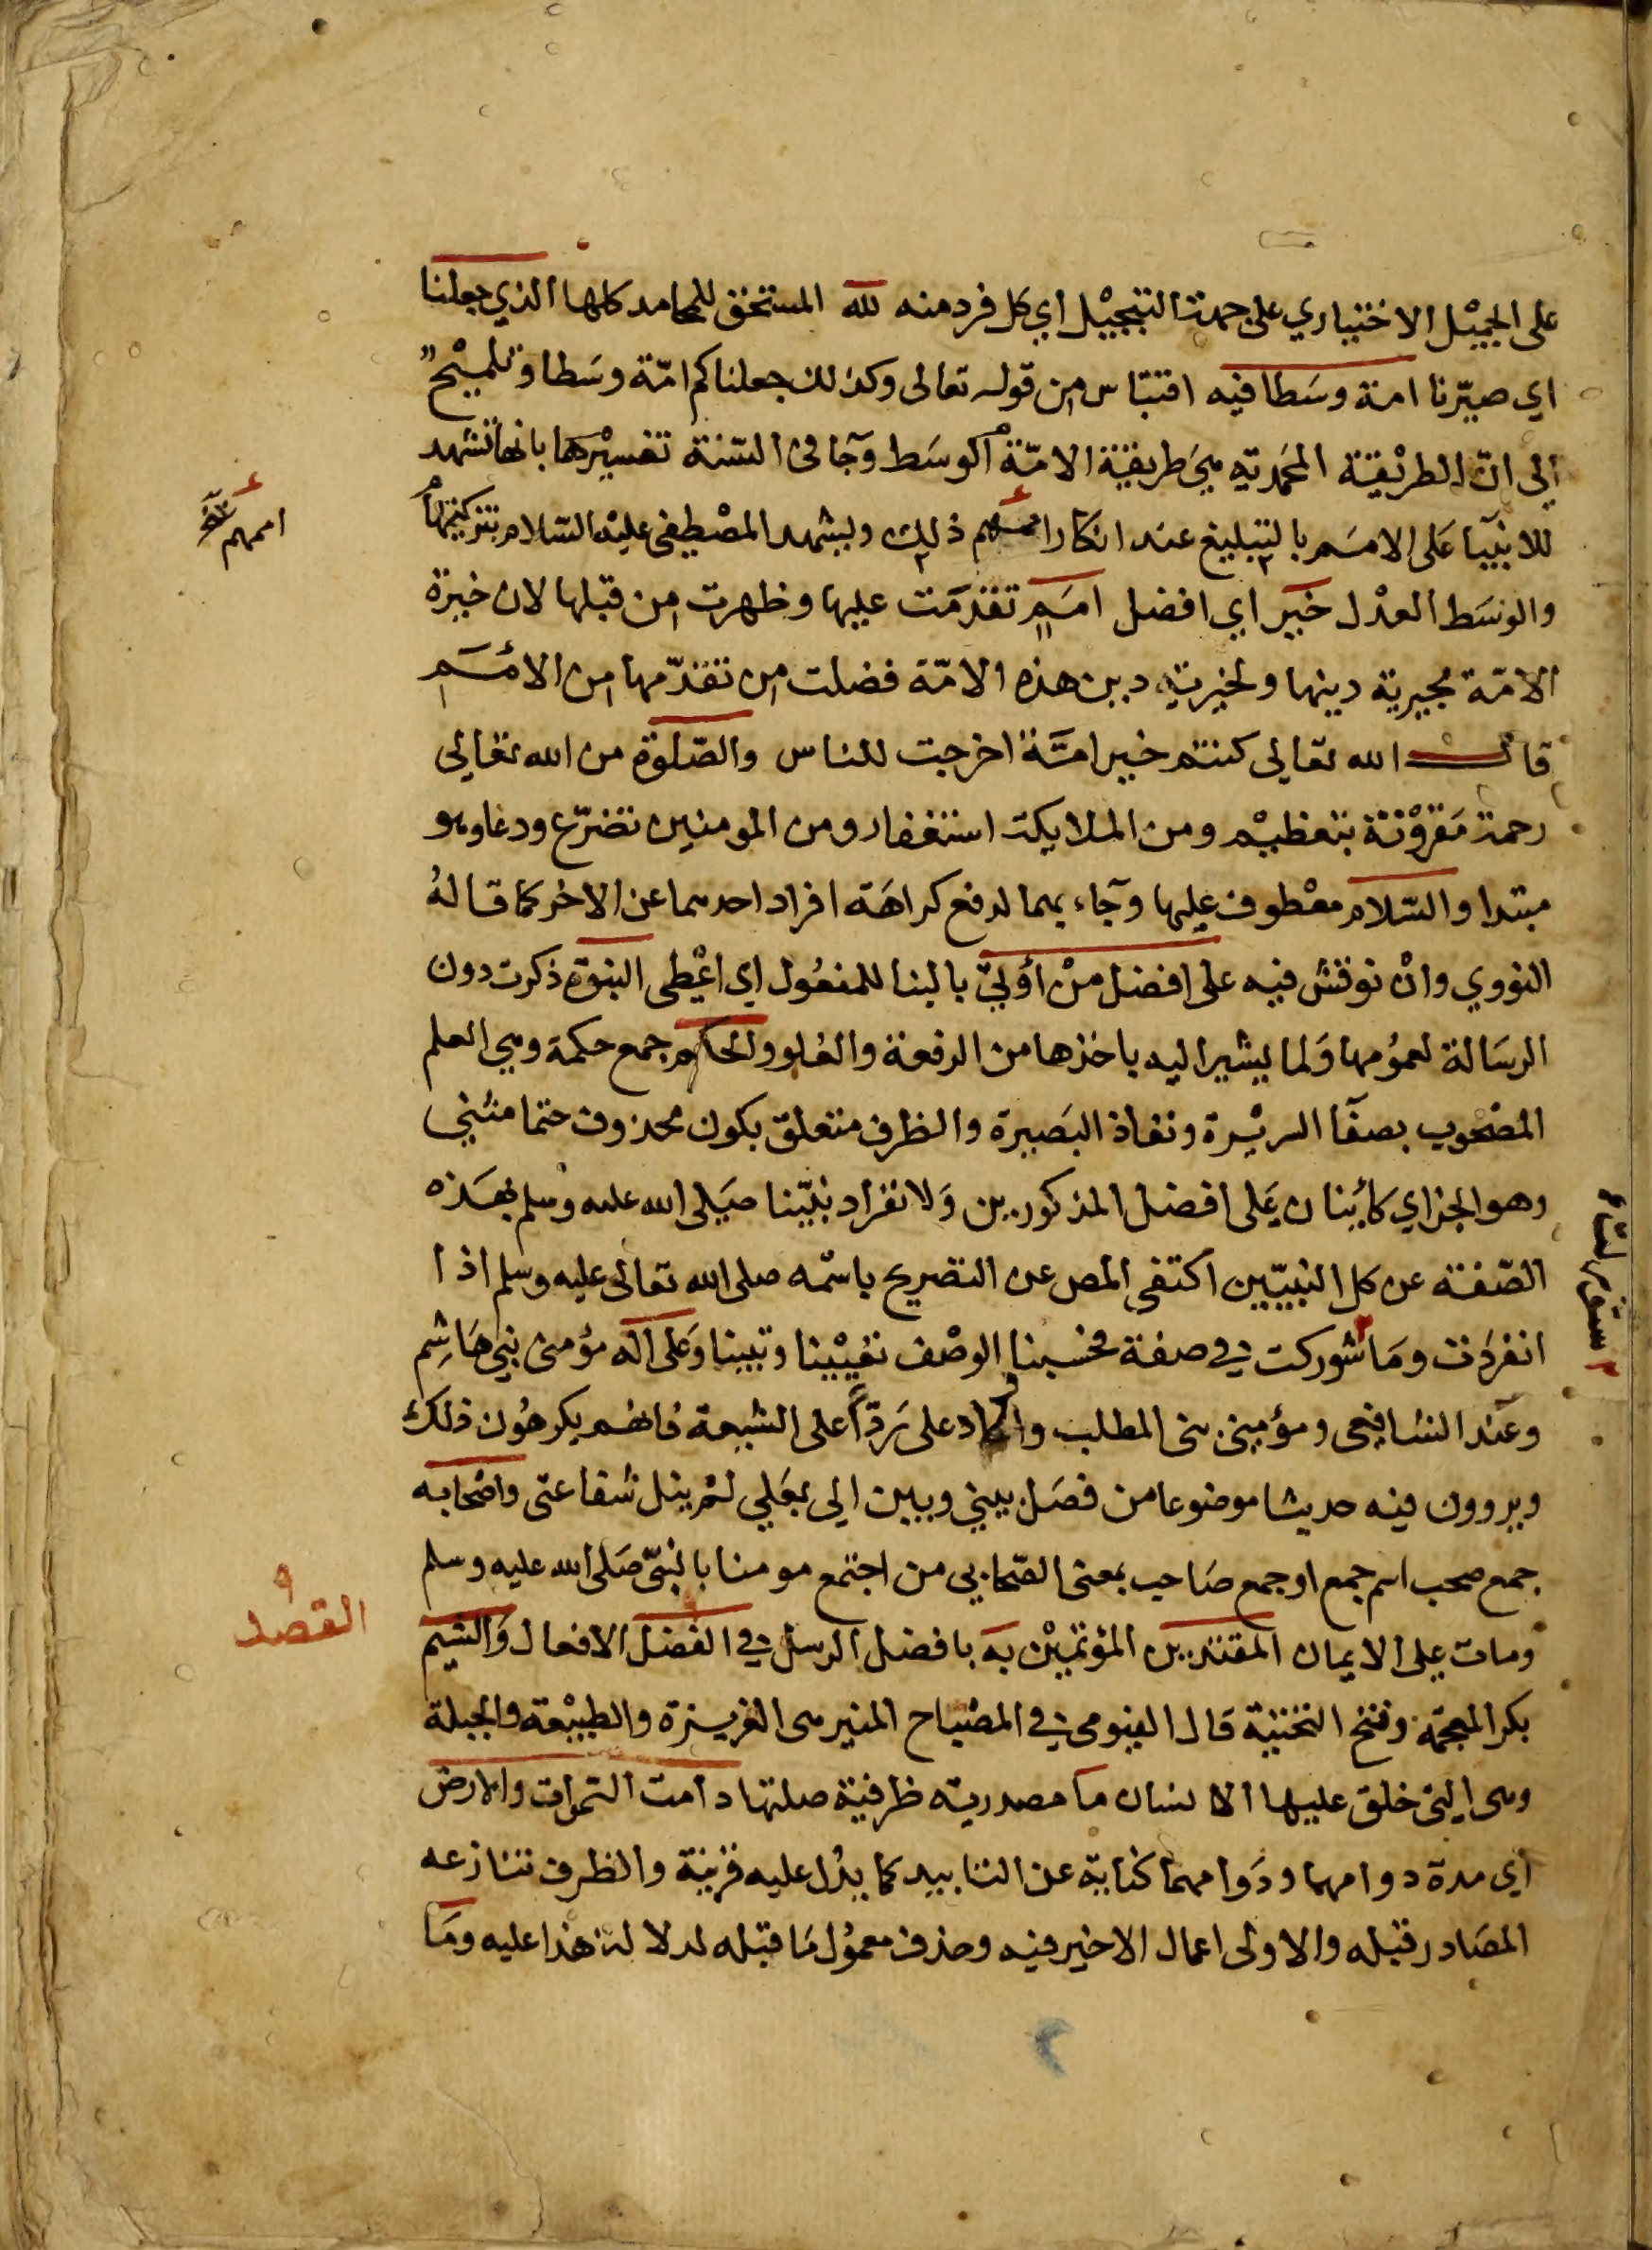 على الجميل الاختياري على جهة التبجيل اي كل فرد منه لله المستحق للمحامد كلها الذي جعلنا
اي صيّرنا امة وسَطا فيه اقتباس من قوله تعالى وكذلك جعلناكم امّة وسَطا وتلميْح
الى انّ الطريْقة المحَمدية هي طريقة الامّة الوسَط وجآ في السّنة تفسيْرها بانها تشهد
للانبيآ عَلى الامَم بالتبليغ عند انكار اممهم ذلك ويشهد المصْطفى عليْه السّلام بتزكيتها
والوسَط العدْل خيَر اي افضل امَمٍ تقدمَت عليها وظهرت من قبلها لان خيرة
الامّة بخيرية دينها ولخيرية دين هذه الامّة فضلت من تقدّمها من الامَم
قال الله تعالى كنتم خير امّة اخرجت للناس والصّلوة من الله تعالى
رحمة مَقروْنة بتعظيْم ومن الملايكة استغفار ومن المومنين تضرّع ودعا وهو
مبتدا والسّلام معْطوف عليها وجآء بهما لدفع كراهَة افراد احدهما عن الاخر كما قالهُ
النووي وانْ نوقش فيه على افضل منْ أوْتيَ بالبنا للمفعُول اي اعْطى النبوّة ذكرت دون
الرسَالة لعمُومها وَلما يشير اليه باخذها من الرفعة والعُلو والحكم جمع حكمة وهي العلم
المصْحوب بصفآ السريْرة ونفاذ البَصيرة والظرف متعلق بكون محذوف حتما مثني
وهو الجزاي كائنان عَلى افضل المذكورين وَلانفراد نبيّنا صَلى الله عليه وسلم بهَذه
الصّفة عن كل النبيّين اكتفى المص عن التصريح باسْمه صلى الله تعالى عليه وسلم اذا
انفردَت ومَا شوركت في صفة فحسبنا الوصْف تعْيينا وتبيينا وَعَلى اله مؤمني بَني هَاشِم
وعند الشافعي ومؤمني بني المطلب واعاد على رَدّاً على الشيعة فانهُم يكرهُون ذلك
ويروون فيه حديثا موضوعا من فصَل بيني وبين الى بعَلي لمْ ينل شفاعتى واصْحابه
جمع صحب اسم جمع او جمع صَاحب بمعنى الصّحابي من اجتمع مومنا بالنبيّ صَلى الله عليه وسلم
ومات على الايمان المقتدين المؤتميْن به بافضل الرسل في القصْد الافعال وَالشيم
بكر المعجمة وفتح التحتية قال الفيومي في المصْباح المنير هي الغريزة والطبيْعة والجبلة
وهي التي خلق عليها الانسان ما مصدرية ظرفية صلتها دامت السّموات والارض
اي مدة دوامهما ودَوامهما كناية عن التابيد كما يدُل عليه قرينة والظرف تنازعه
المصَادر قبله والاولى اعمال الاخير فيه وحذف معمُول مَا قبْله لدلالة هذا عليه ومَا
اممهم
القصد